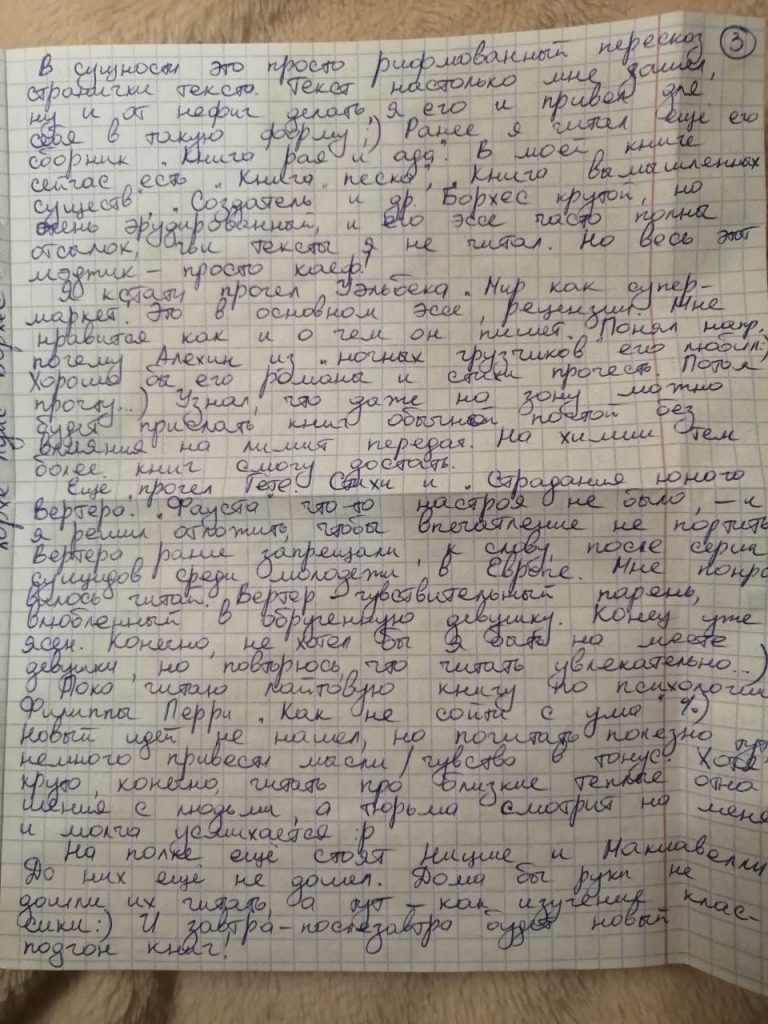 3
В сущности это просто рифмованный пересказ
странички текста. Текст настолько мне зашёл,
ну и от нефиг делать, я его и привёл для
себя в такую форму:) Ранее я читал ещё его
сборник „Книга рая и ада". В моей книге
сейчас есть „Книга песка", „Книга вымышленных
существ", „Создатель" и др. Борхес крутой, но
очень эрудированный, и его эссе часто полны
отсылок, чьи тексты я не читал. Но весь этот
мэджик – просто каеф!
Я кстати прочёл Уэльбека „Мир как супер-
маркет". Это в основном эссе, рецензии. Мне
нравится как и о чем он пишет. Понял напр.
почему Алехин из „ночных грузчиков" его любил:)
Хорошо бы его романы и стихи прочесть. Потом
прочту...) Узнал, что даже на зону можно
будет присылать книг обычной почтой без
влияния на лимит передач. На химии тем
более книг смогу достать.
Ещё прочел Гёте. Стихи и „Страдания юного
Вертера". „Фауста" что-то настроя не было, – и
я решил отложить, чтобы впечатление не портить
Вертера ранее запрещали, к слову, после серии
суицидов среди молодёжи в Европе. Мне понра
вилось читать. Вертер – чувствительный парень,
влюбленный в обрученную девушку. Конец уже
ясен. Конечно, не хотел бы я быть на месте
девушки, но повторюсь, что читать увлекательно...)
Пока читаю лайтовую книгу по психологии
Филиппы Перри „Как не сойти с ума" %)
Новый идей не нашел, но почитать полезно
немного привести мысли/чувства в тонус. Хотя
круто, конечно, читать про близкие теплые отно
шения с людьми, а тюрьма смотрит на меня
и молча усмихается :р
На полке ещё стоят Ницше и Макиавелли
До них ещё не дошел. Дома бы руки не
дошли их читать, а тут – как изучение клас-
сики:) И завтра-послезавтра будет новый
подгон книг!
Хорхе Луис Борхес